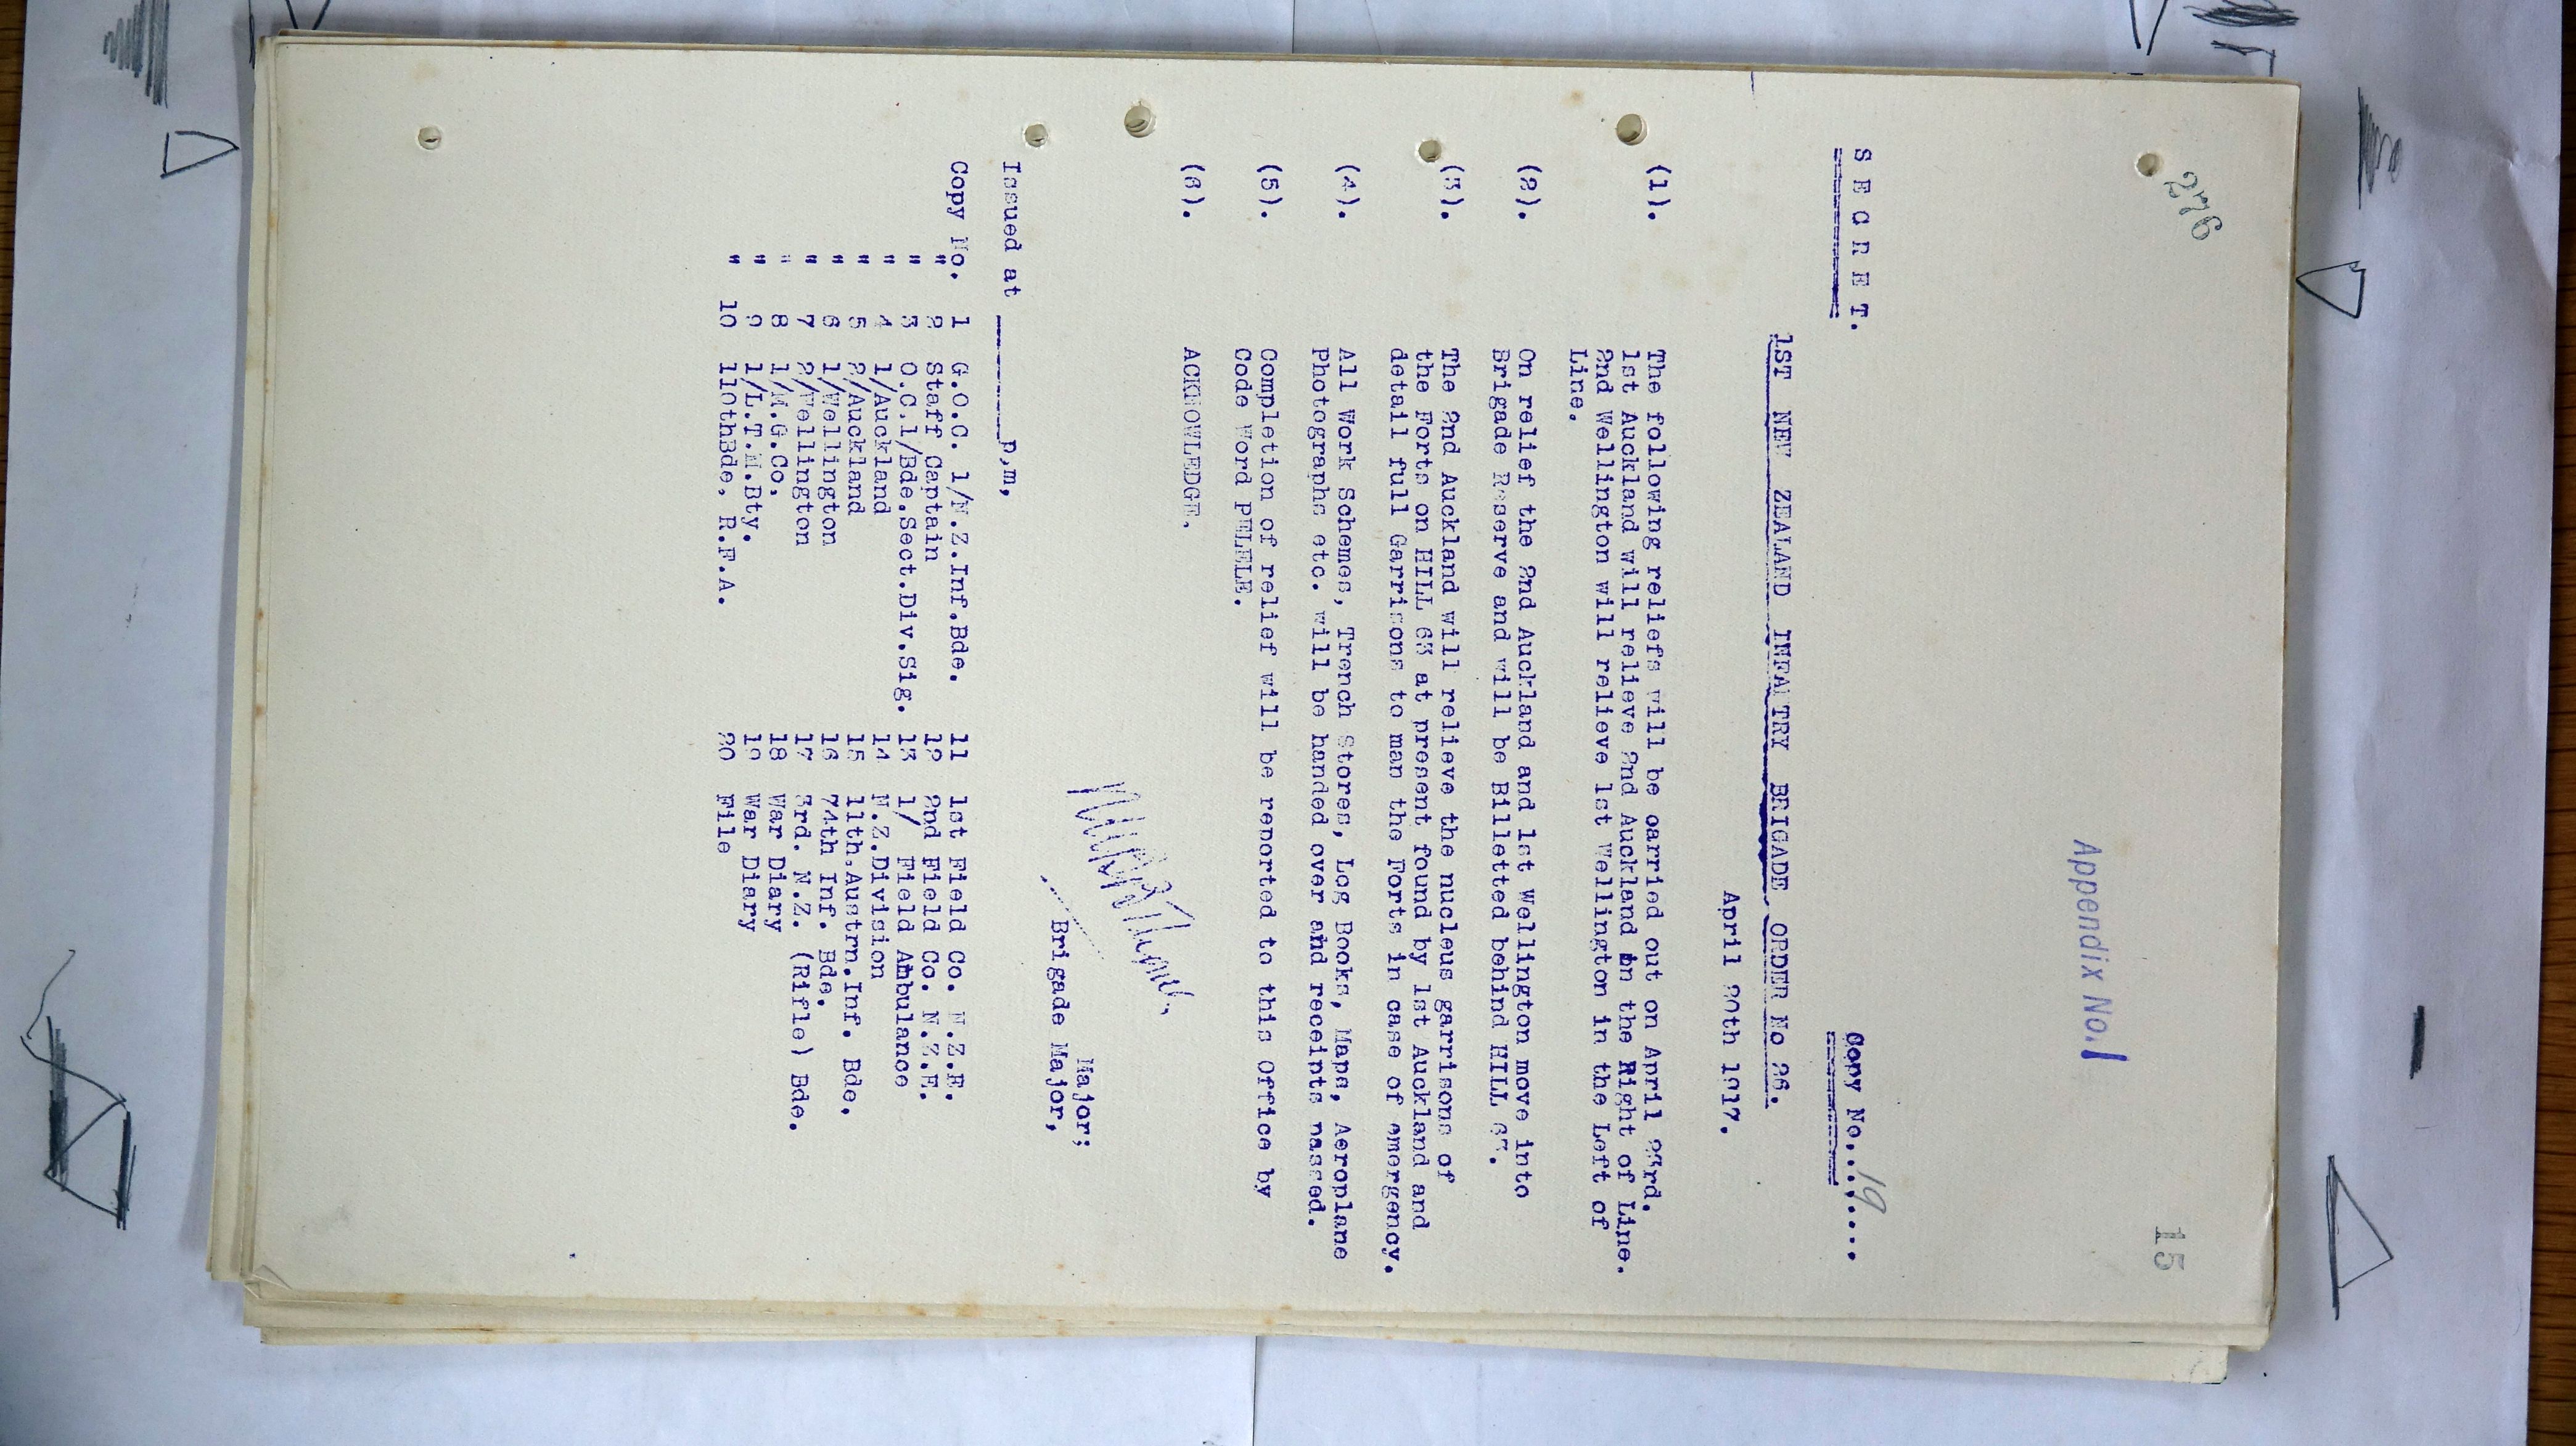 276
15
Appendix No.1
S E C R E T.
Copy No...19....
1ST NEW ZEALAND INFANTRY BRIGADE ORDER No 26.
April 20th 1917.
(1). The following reliefs will be carried out on April 23rd.
1st Auckland will relieve 2nd Auckland on the Right of Line.
2nd Wellington will relieve 1st Wellington in the Left of
Line.
(2). On relief the 2nd Auckland and 1st Wellington move into
Brigade Reserve and will be Billetted behind HILL 63.
(3). The 2nd Auckland will relieve the nucleus garrisons of
the Forts on HILL 63 at present found by 1st Auckland and
detail full Garrisons to man the Forts in case of emergency.
(4). All Work Schemes, Trench Stores, Log Books, Maps, Aeroplane
Photographs etc. will be handed over and receipts passed.
(5). Completion of relief will be reported to this Office by
Code Word PELELE.
(6). ACKNOWLEDGE.
Major;
Brigade Major,
Issued at ________p,m,
Copy No. 1 G.O.C. 1/N.Z.Inf.Bde. 11 1st Field Co. N.Z.E.
" 2 Staff Captain 12 2nd Field Co. N.Z.E.
" 3 O.C.1/Bde.Sect.Div.Sig. 13 1/ Field Ambulance
" 4 1/Auckland 14 N.Z.Division
" 5 2/Auckland 15 11th.Austrn.Inf. Bde.
" 6 1/Wellington 16 74th Inf. Bde.
" 7 2/Wellington 17 3rd. N.Z. (Rifle) Bde.
" 8 1/M.G.Co, 18 War Diary
" 9 1/L.T.M.Bty. 19 War Diary
" 10 110thBde, R.F.A. 20 File